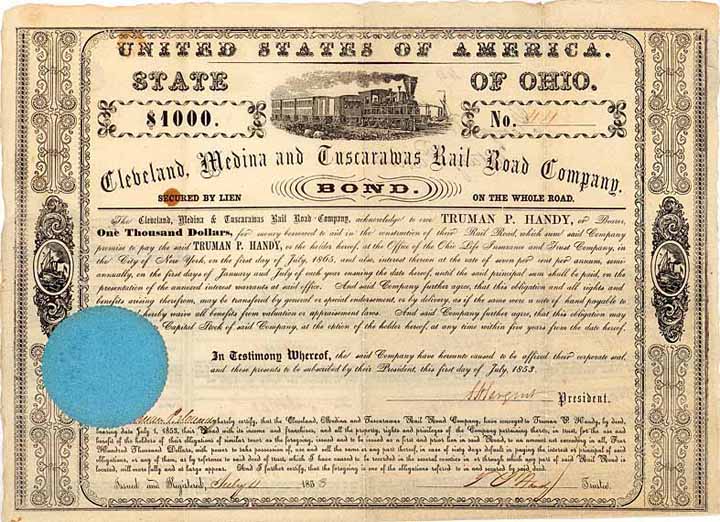 UNITED STATES OF AMERICA.
STATE OF OHIO.
$1000. No.
Cleveland, Medina and Tuscarawas Rail Road Company.
SECURED BY LIEN BOND. ON THE WHOLE ROAD.
The Cleveland, Medina & Tuscarawas Rail Road Company, acknowledge to owe TRUMAN P. HANDY, or Bearer,
One Thousand Dollars, for money borrowed to aid in the construction of their Rail Road, which sum said Company
promise to pay the said TRUMAN P. HANDY, or the holder hereof, at the Office of the Ohio Life Insurance and Trust Company, in
the City of New York, on the first day of July, 1865, and also, interest thereon at the rate of seven per cent per annum, semi-
annually, on the first days of January and July of each year ensuing the date hereof, until the said principal sum shall be paid, on the
presentation of the annexed interest warrants at said office. And said Company further agree, that this obligation and all rights and
benefits arising therefrom, may be transferred by general or special endorsement, or by delivery, as if the same were a note of hand payable to
hereby waive all benefits from valuation or appraisement laws. And said Company further agree, that this obligation may
Capital Stock of said Company, at the option of the holder hereof, at any time within five years from the date hereof.
In Testimony Whereof, the said Company have hereunto caused to be affixed their corporate seal,
and these presents to be subscribed by their President, this first day of July, 1853.
President.
hereby certify, that the Cleveland, Medina and Tuscarawas Rail Road Company, have conveyed to Truman P. Handy, by deed,
bearing date July 1, 1853, their Road with its income and franchises, and all the property, rights and privileges of the Company pertaining thereto, in trust, for the use and
benefit of the holders of their obligations of similar tenor as the foregoing, issued and to be issued as a first and prior lien on said Road, to an amount not exceeding in all, Four
Hundred Thousand Dollars, with power to take possession of, use and sell the same or any part thereof, in case of sixty days default in paying the interest or principal of said
obligations, or any of them, or by reference to said deed of trust, which I have caused to be recorded in the several counties in or through which any part of said Rail Road is
located, will more fully and at large appear. And I further certify, that the foregoing is one of the obligations referred to in and secured by said deed.
Issued and Registered, July 11 1853 T. P. Handy Trustee.